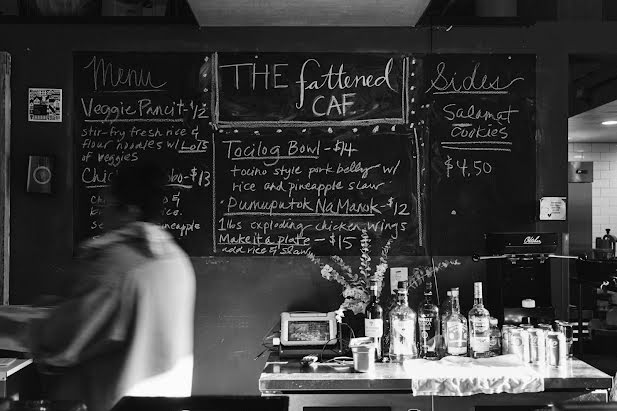 Menu
Veggie Pancit - $12
stir-fry fresh rice and
flour noodles w/ LOTS
of veggies
$13
rice.
pineapple
THE fattened
CAF
Tocilog Bowl - $14
tocino style pork belly w/
rice and pineapple slaw
Pumuputok Na Manok - $12
1lbs exploding chicken wings
Make it a plate - $15
add rice & slaw
Sides
Salamat
cookies
$4.50